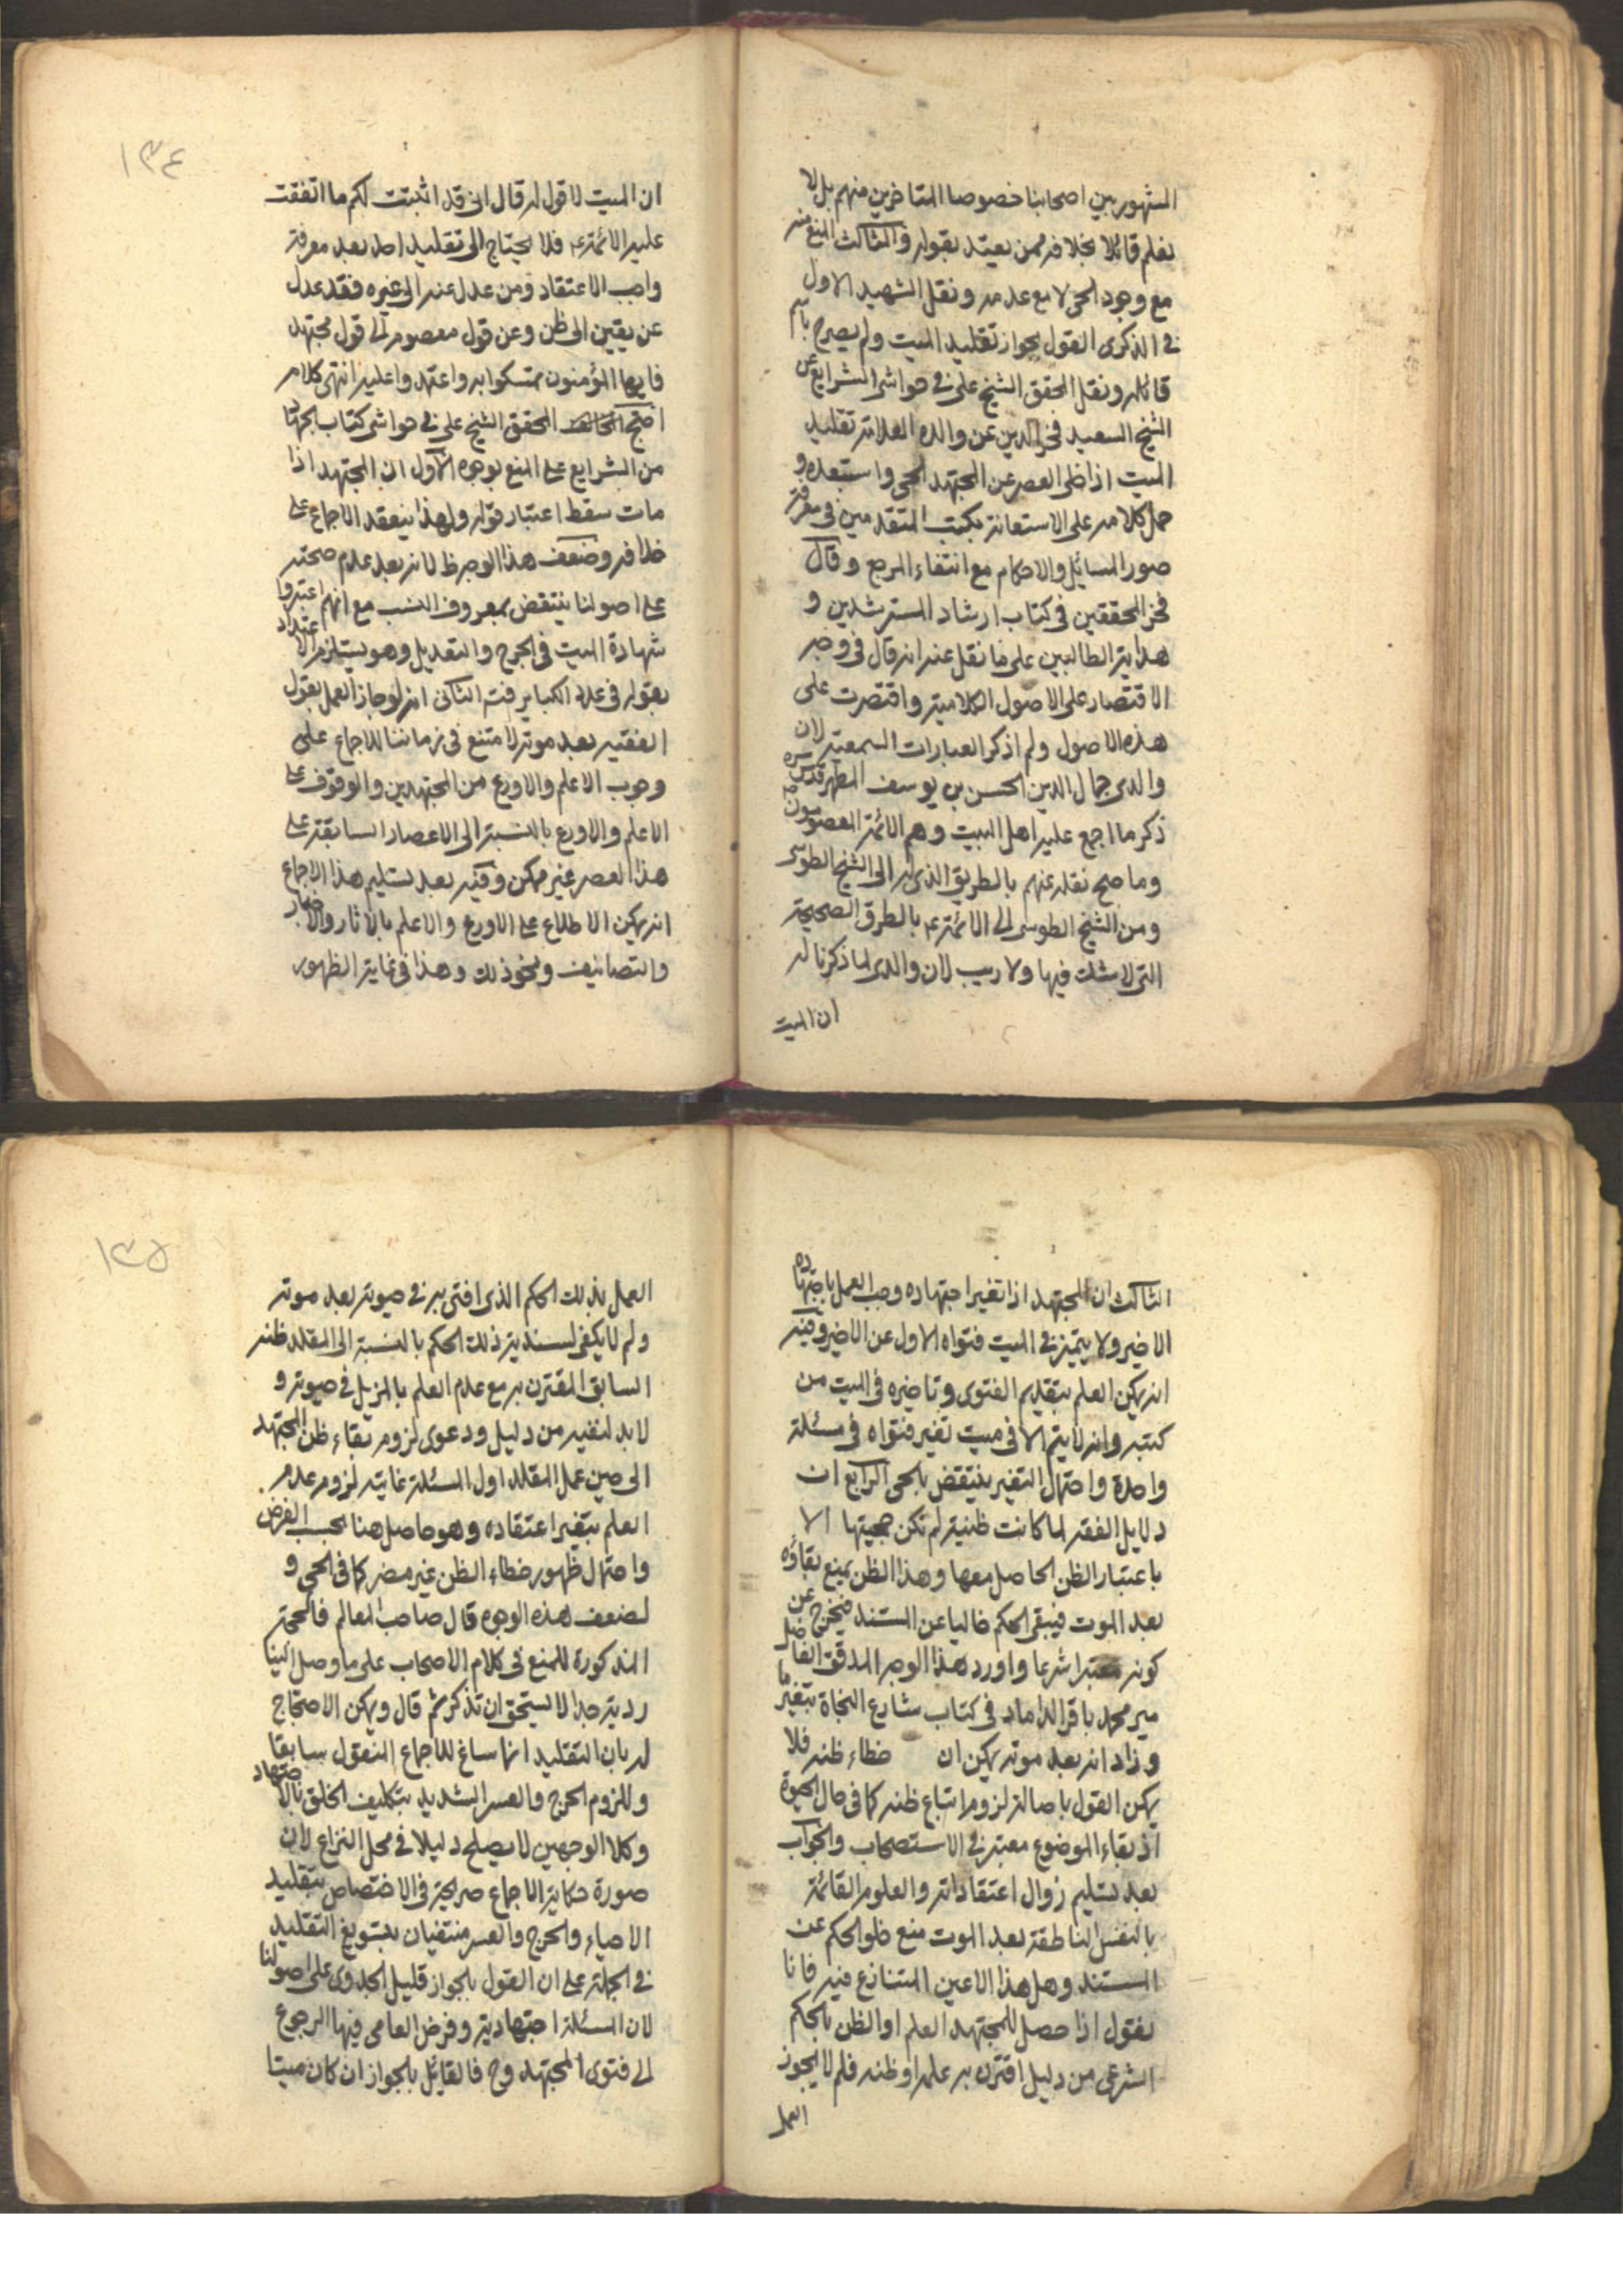 المشهور بين اصحابنا خصوصا المتاخرين منهم بل لا
يعلم قائلا بخلافه ممن يعتد بقوله والثالث المنع منه
مع وجود الحى لا مع عدمه ونقل الشهيد الاول
فى الذكرى القول بجواز تقليد الميت ولم يصرح باسم
قائله ونقل المحقق الشيخ على فى حواشى الشرايع عن
الشيخ السعيد فخر الدين عن والده العلامة تقليد
الميت اذا خلى العصر عن المجتهد الحى واستبعده و
حمل كلامه على الاستعانة بكتب المتقدمين فى معرفة
صور المسائل والاحكام مع انتفاء المرجع وقال
فخر المحققين فى كتاب ارشاد المسترشدين و
هداية الطالبين على ما نقل عنه انه قال فى وجه
الاقتصار على الاصول الكلامية واقتصرت على
هذه الاصول ولم اذكر العبارات السمعية لان
والدى جمال الدين الحسن بن يوسف المطهر قدس سره
ذكر ما اجمع عليه اهل البيت وهم الائمة المعصومون
وما صح نقله عنهم بالطريق الذى له الى الشيخ الطوسى
ومن الشيخ الطوسى الى الائمة ع بالطرق الصحيحة
التى لا شك فيها ولا ريب لان والدى لما ذكرنا له
ان الميت
١٣٤
ان الميت لا قول له قال انى قد اثبتت لكم ما اتفقت
عليه الائمة ع فلا يحتاج الى تقليد احد بعد معرفة
واجب الاعتقاد ومن عدل عنه الى غيره فقد عدل
عن يقين الى ظن وعن قول معصوم الى قول مجتهد
فايها المؤمنون تمسكوا به واعتمدوا عليه انتهى كلامه
احتج المحقق الشيخ على فى حواشى كتاب الجهاد
من الشرايع على المنع بوجوه الاول ان المجتهد اذا
مات سقط اعتبار قوله ولهذا ينعقد الاجماع على
خلافه وضعف هذا الوجه ظ لانه بعد عدم صحته
على اصولنا ينتقض بمعروف النسب مع انهم اعتبروا
شهادة الميت فى الجرح والتعديل وهو يستلزم الاعتداد
بقوله فى عدد الكباير فتم الثانى انه لو جاز العمل بقول
الفقيه بعد موته لامتنع فى زماننا للاجماع على
وجوب الاعلم والاورع من المجتهدين والوقوف على
الاعلم والاورع بالنسبة الى الاعصار السابقة على
هذا العصر غير ممكن وفيه بعد تسليم هذا الاجماع
انه يمكن الاطلاع على الاورع والاعلم بالاثار والاخبار
والتصانيف ونحو ذلك وهذا فى غاية الظهور
الثالث ان المجتهد اذا تغير اجتهاده وجب العمل باجتهاده
الاخير ولا يتميز فى الميت فتواه الاول عن الاخير وفيه
انه يمكن العلم بتقديم الفتوى وتاخيره فى الميت من
كتبه وانه لا يتم الا فى ميت تغير فتواه فى مسئلة
واحدة واحتمال التغير ينتقض بالحى الرابع ان
دلايل الفقه لما كانت ظنية لم تكن حجيتها الا
باعتبار الظن الحاصل معها وهذا الظن يمنع بقاؤه
بعد الموت فيبقى الحكم خاليا عن السند فيخرج عن
كونه معتبرا شرعا واورد هذا الوجه المدقق الفاضل
مير محمد باقر الداماد فى كتاب شارع النجاة بتغير ما
وزاد انه بعد موته يمكن ان خطاء ظنه فلا
يمكن القول باصالة لزوم اتباع ظنه كما فى حال الحيوة
اذ بقاء الموضوع معتبر فى الاستصحاب والجواب
بعد تسليم زوال اعتقاداته والعلوم القائمة
بالنفس الناطقة بعد الموت منع خلو الحكم عن
السند وهل هذا الا عين المتنازع فيه فانا
نقول اذا حصل للمجتهد العلم او الظن بالحكم
الشرعى من دليل اقترن به علمه او ظنه فلم لا يجوز
العمل
١٣٥
العمل بذلك الحكم الذى افتى به فى حيوته بعد موته
ولم لا يكفى لسندية ذلك الحكم بالنسبة الى المقلد ظنه
السابق المقترن به مع عدم العلم بالمزيل فى حيوته و
لا بد لنفيه من دليل ودعوى لزوم بقاء ظن المجتهد
الى حين عمل المقلد اول المسئلة غايته لزوم عدم
العلم بتغير اعتقاده وهو حاصل هنا بحسب الفرض
واحتمال ظهور خطاء الظن غير مضر كما فى الحى و
لضعف هذه الوجوه قال صاحب المعالم فالحجة
المذكورة للمنع فى كلام الاصحاب على ما وصل الينا
ردية جدا لا يستحق ان تذكر ثم قال ويمكن الاحتجاج
له بان التقليد انما ساغ للاجماع المنقول سابقا
وللزوم الحرج والعسر الشديد بتكليف الخلق بالاجتهاد
وكلا الوجهين لا يصلح دليلا فى محل النزاع لان
صورة حكاية الاجماع صريحة فى الاختصاص بتقليد
الاحياء والحرج والعسر منتفيان بتسويغ التقليد
فى الجملة على ان القول بالجواز قليل الجدوى على اصولنا
لان المسئلة اجتهادية وفرض العامى فيها الرجوع
الى فتوى المجتهد وح فالقائل بالجواز ان كان ميتا